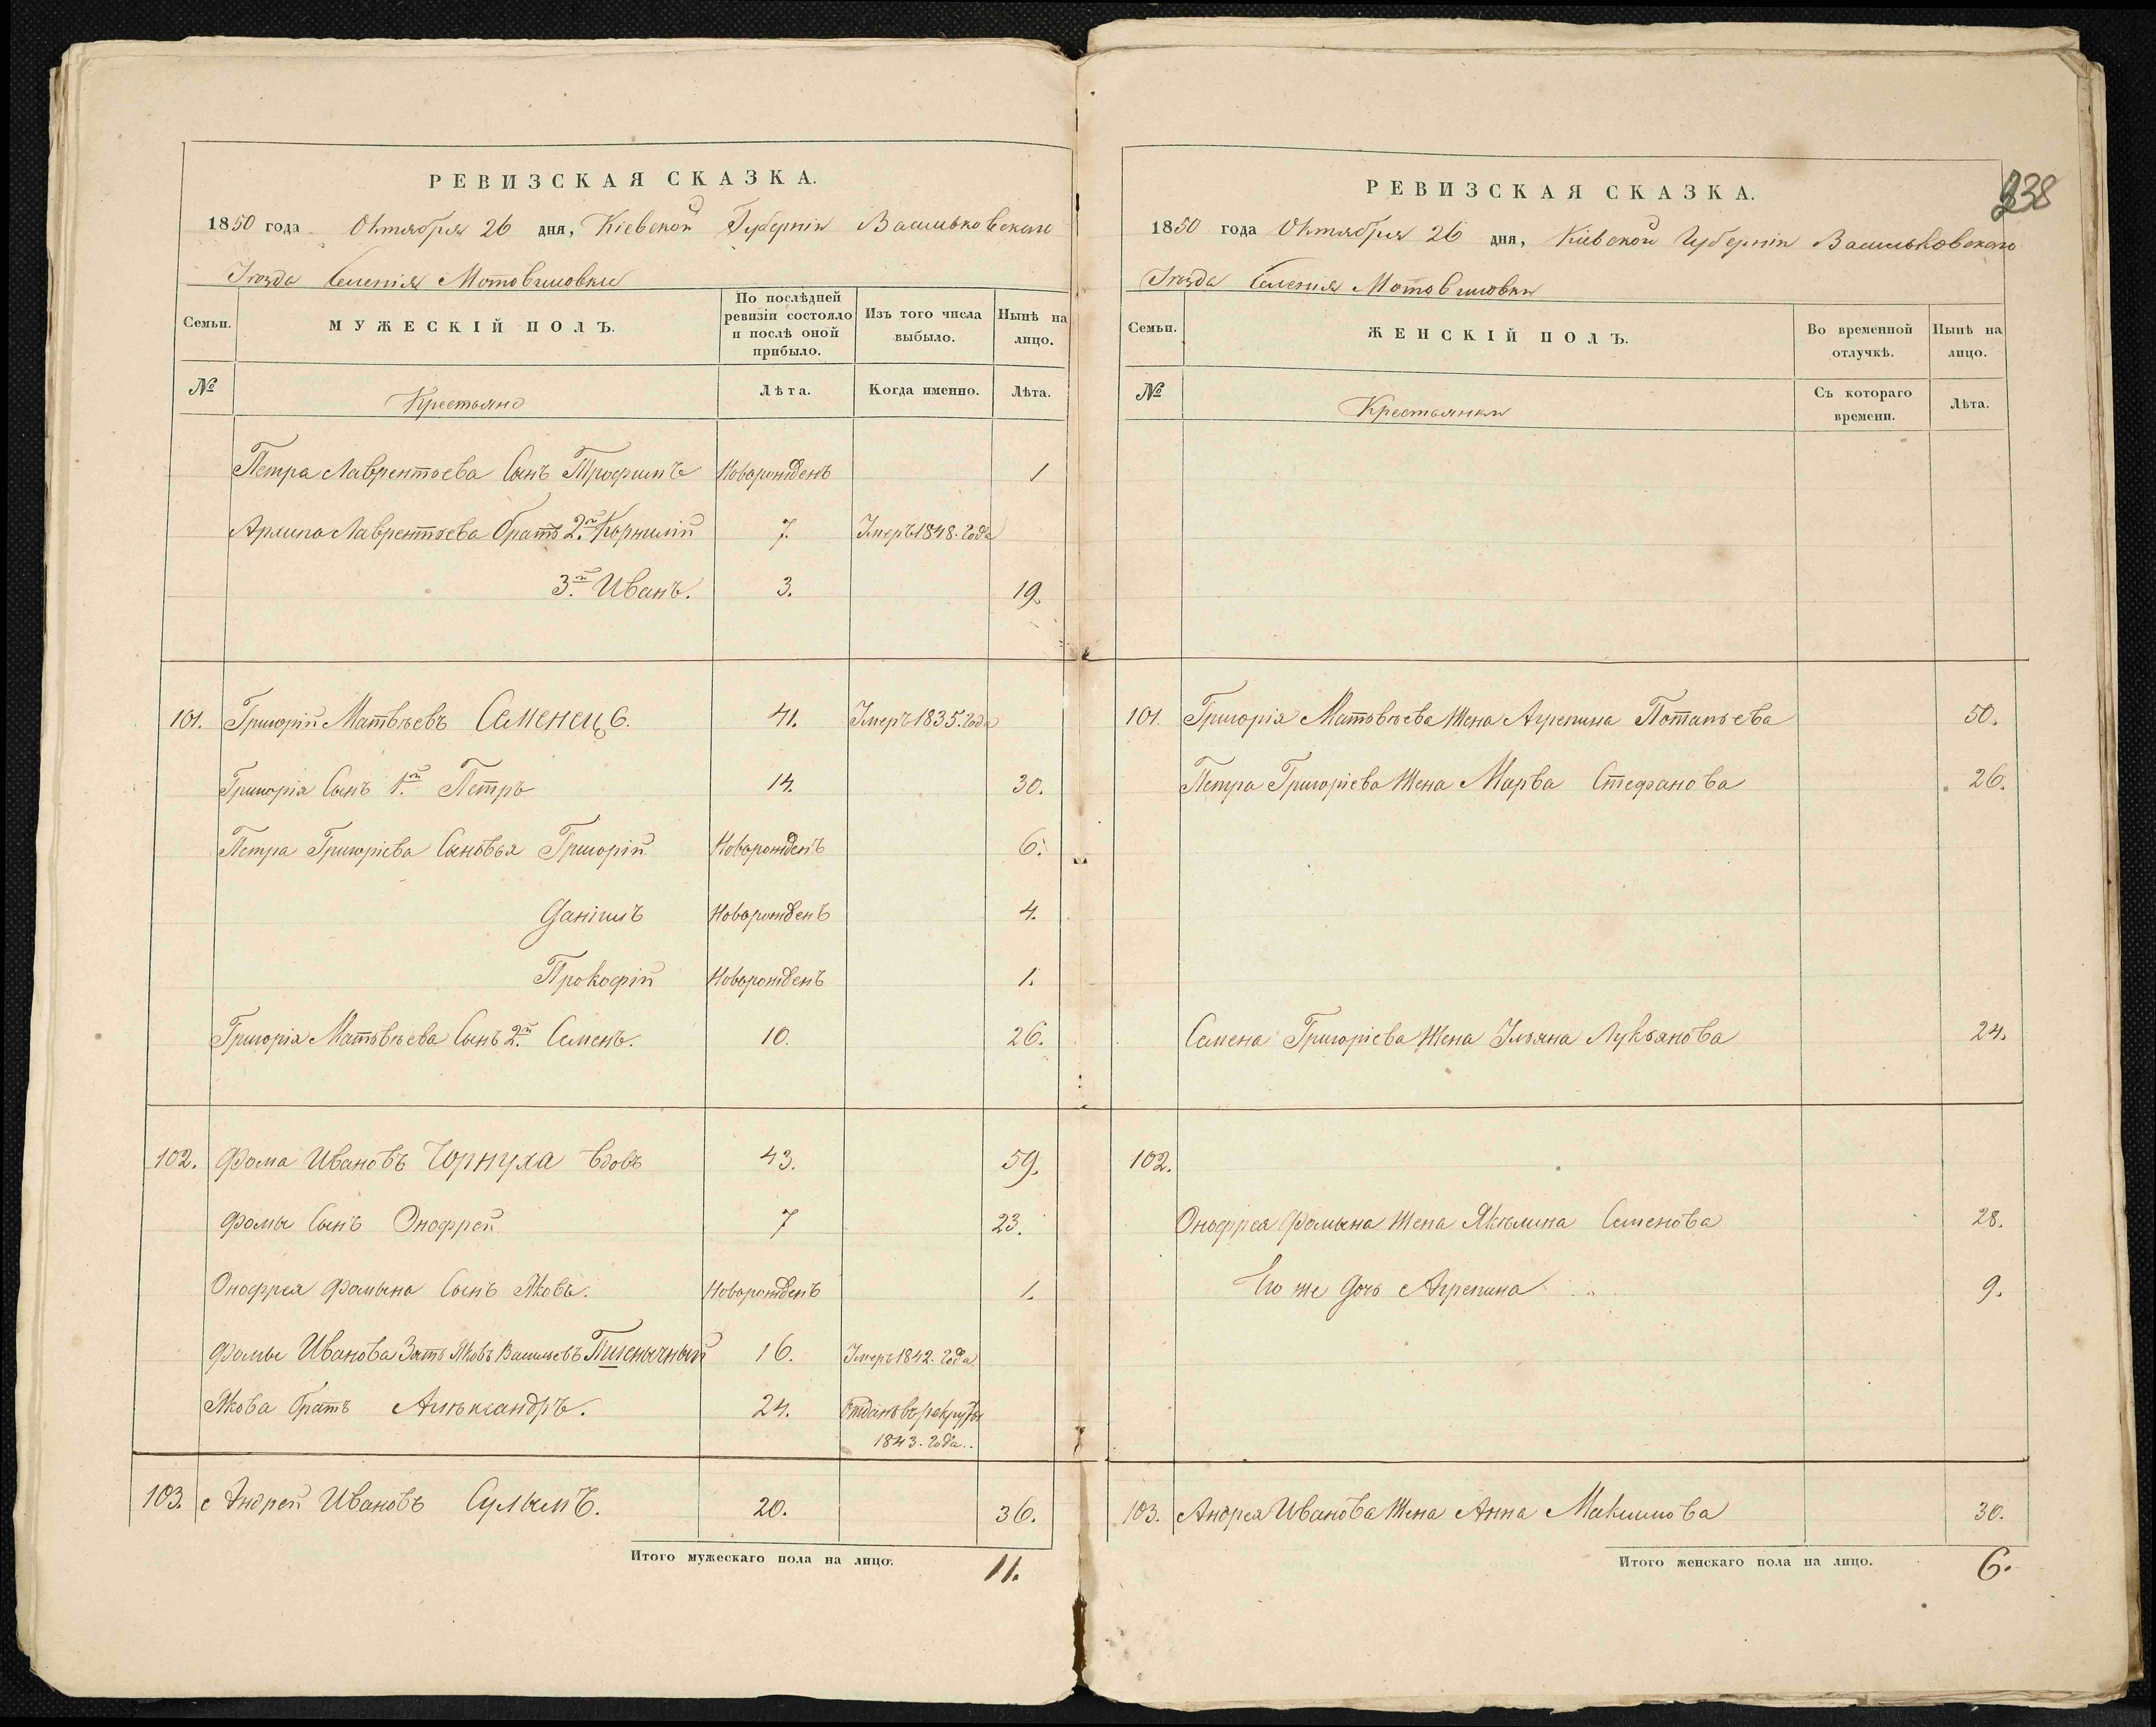 РЕВИЗСКАЯ СКАЗКА.
1850 года Октября 26 дня, Кіевской Губерніи Васильковскаго
Уѣзда Селенія Мотовиловки
Семьи.
МУЖЕСКІЙ ПОЛЪ.
По послѣдней ревизіи состояло и послѣ оной прибыло.
Изъ того числа выбыло.
Нынѣ на лицо.
№ Крестьяне Лѣта. Когда именно. Лѣта.
Петра Лаврентьева Сынъ Трофимъ Новорожденъ 1
Архипа Лаврентьева братъ 2й Корнилій 7. Умеръ 1848. года
3й Иванъ. 3. 19.
101. Григорій Матвѣевъ Семенецъ. 41. Умеръ 1835. года
Григорія Сынъ 1й Петръ 14. 30.
Петра Григоріева Сыновья Григорій Новорожденъ 6.
Даніилъ Новорожденъ 4.
Прокофій Новорожденъ 1.
Григорія Матвѣева Сынъ 2й Семенъ. 10. 26.
102. Фома Ивановъ Чорнуха вдовъ 43. 59.
Фомы Сынъ Онофрей 7 23.
Онофрея Фомина Сынъ Яковъ. Новорожденъ 1.
Фомы Иванова Зять Яковъ Васильевъ Пшеничный 16. Умеръ 1842. года
Якова братъ Алѣксандръ. 24. Отданъ въ рекруты
1843. года.
103. Андрей Ивановъ Сулымъ. 20. 36.
Итого мужескаго пола на лицо. 11.
238
РЕВИЗСКАЯ СКАЗКА.
1850 года Октября 26 дня, Кіевской Губерніи Васильковскаго
Уѣзда Селенія Мотовиловки
Семьи.
ЖЕНСКІЙ ПОЛЪ.
Во временной отлучкѣ.
Нынѣ на лицо.
№ Крестьянки Съ котораго времени. Лѣта.
101. Григорія Матвѣева Жена Агрепина Потапьева 50.
Петра Григоріева Жена Марва Стефанова 26.
Семена Григоріева Жена Ульяна Лукьянова 24.
102.
Онофрея Фомына Жена Якѣлина Семенова 28.
Его же Дочь Агрепина 9.
103. Андрея Иванова Жена Анна Максимова 30.
Итого женскаго пола на лицо. 6.